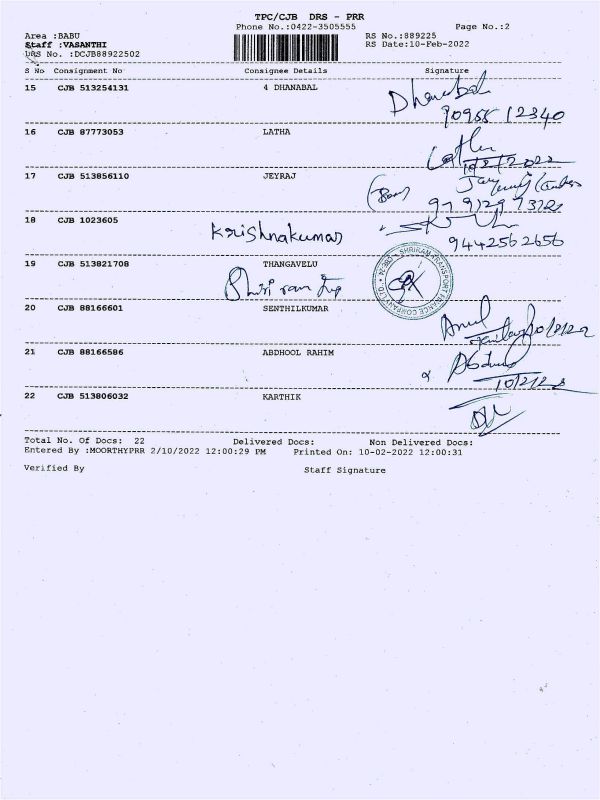 TPC/CJB DRS - PRR
Phone No.:0422-3505555 Page No.:2
Area :BABU RS No.:889225
Staff :VASANTHI RS Date:10-Feb-2022
DRS No. :DCJB88922502
S No Consignment No Consignee Details Signature
15 CJB 513254131 4 DHANABAL Dhanabal
12340
16 CJB 87773053 LATHA Latha
10/2/2022
17 CJB 513856110 JEYRAJ
18 CJB 1023605 Krishnakumar
9442562656
19 CJB 513821708 THANGAVELU SHRIRAM TRANSPORT FINANCE COMPANY LTD.
Shri ram
20 CJB 88166601 SENTHILKUMAR
21 CJB 88166586 ABDHOOL RAHIM Abdul
10/2/22
22 CJB 513806032 KARTHIK
Total No. Of Docs: 22 Delivered Docs: Non Delivered Docs:
Entered By :MOORTHYPRR 2/10/2022 12:00:29 PM Printed On: 10-02-2022 12:00:31
Verified By Staff Signature